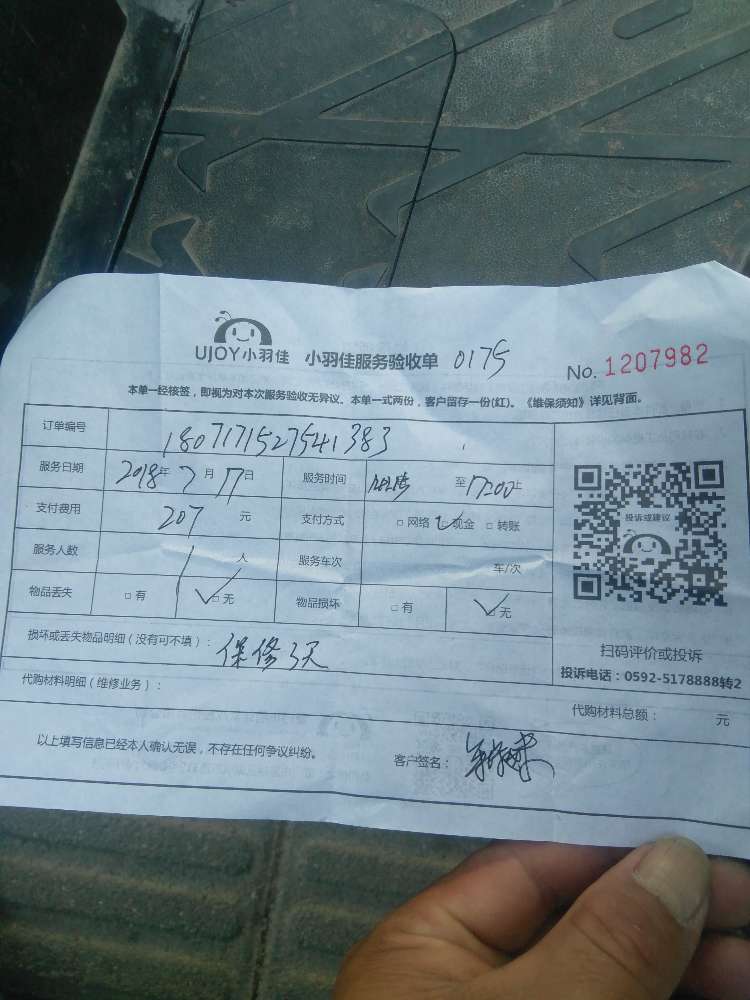 UJOY小羽佳 小羽佳服务验收单 0175 No. 1207982
本单一经核签，即视为对本次服务验收无异议、本单一式两份，客户留存一份(红)。《维保须知》详见背面。
订单编号 1807171527541383
服务日期 2018年7月17日 服务时间 至1200止
支付费用 207元 支付方式 □网络 □现金 □转账
服务人数 1人 服务车次 车/次
物品丢失 □有 □无 物品损坏 □有 □无
投诉或建议
损坏或丢失物品明细（没有可不填）： 保修3天
扫码评价或投诉
投诉电话：0592-5178888转2
代购材料明细（维修业务）： 代购材料总额： 元
以上填写信息已经本人确认无误，不存在任何争议纠纷。 客户签名：